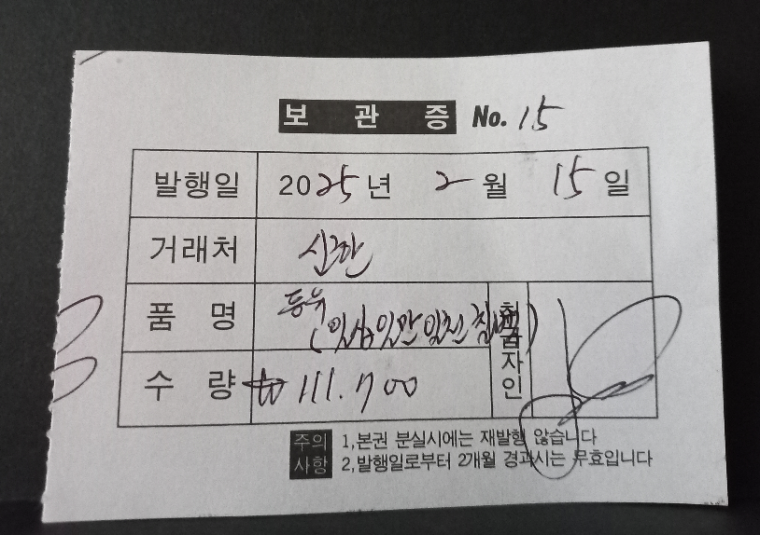 보관증 No. 15
발행일 2025년 2월 15일
거래처 신한
품명 등유
(일십일만일천칠백)
수량 ₩ 111.700
출고자인
주의사항
1,본권 분실시에는 재발행 않습니다
2,발행일로부터 2개월 경과시는 무효입니다